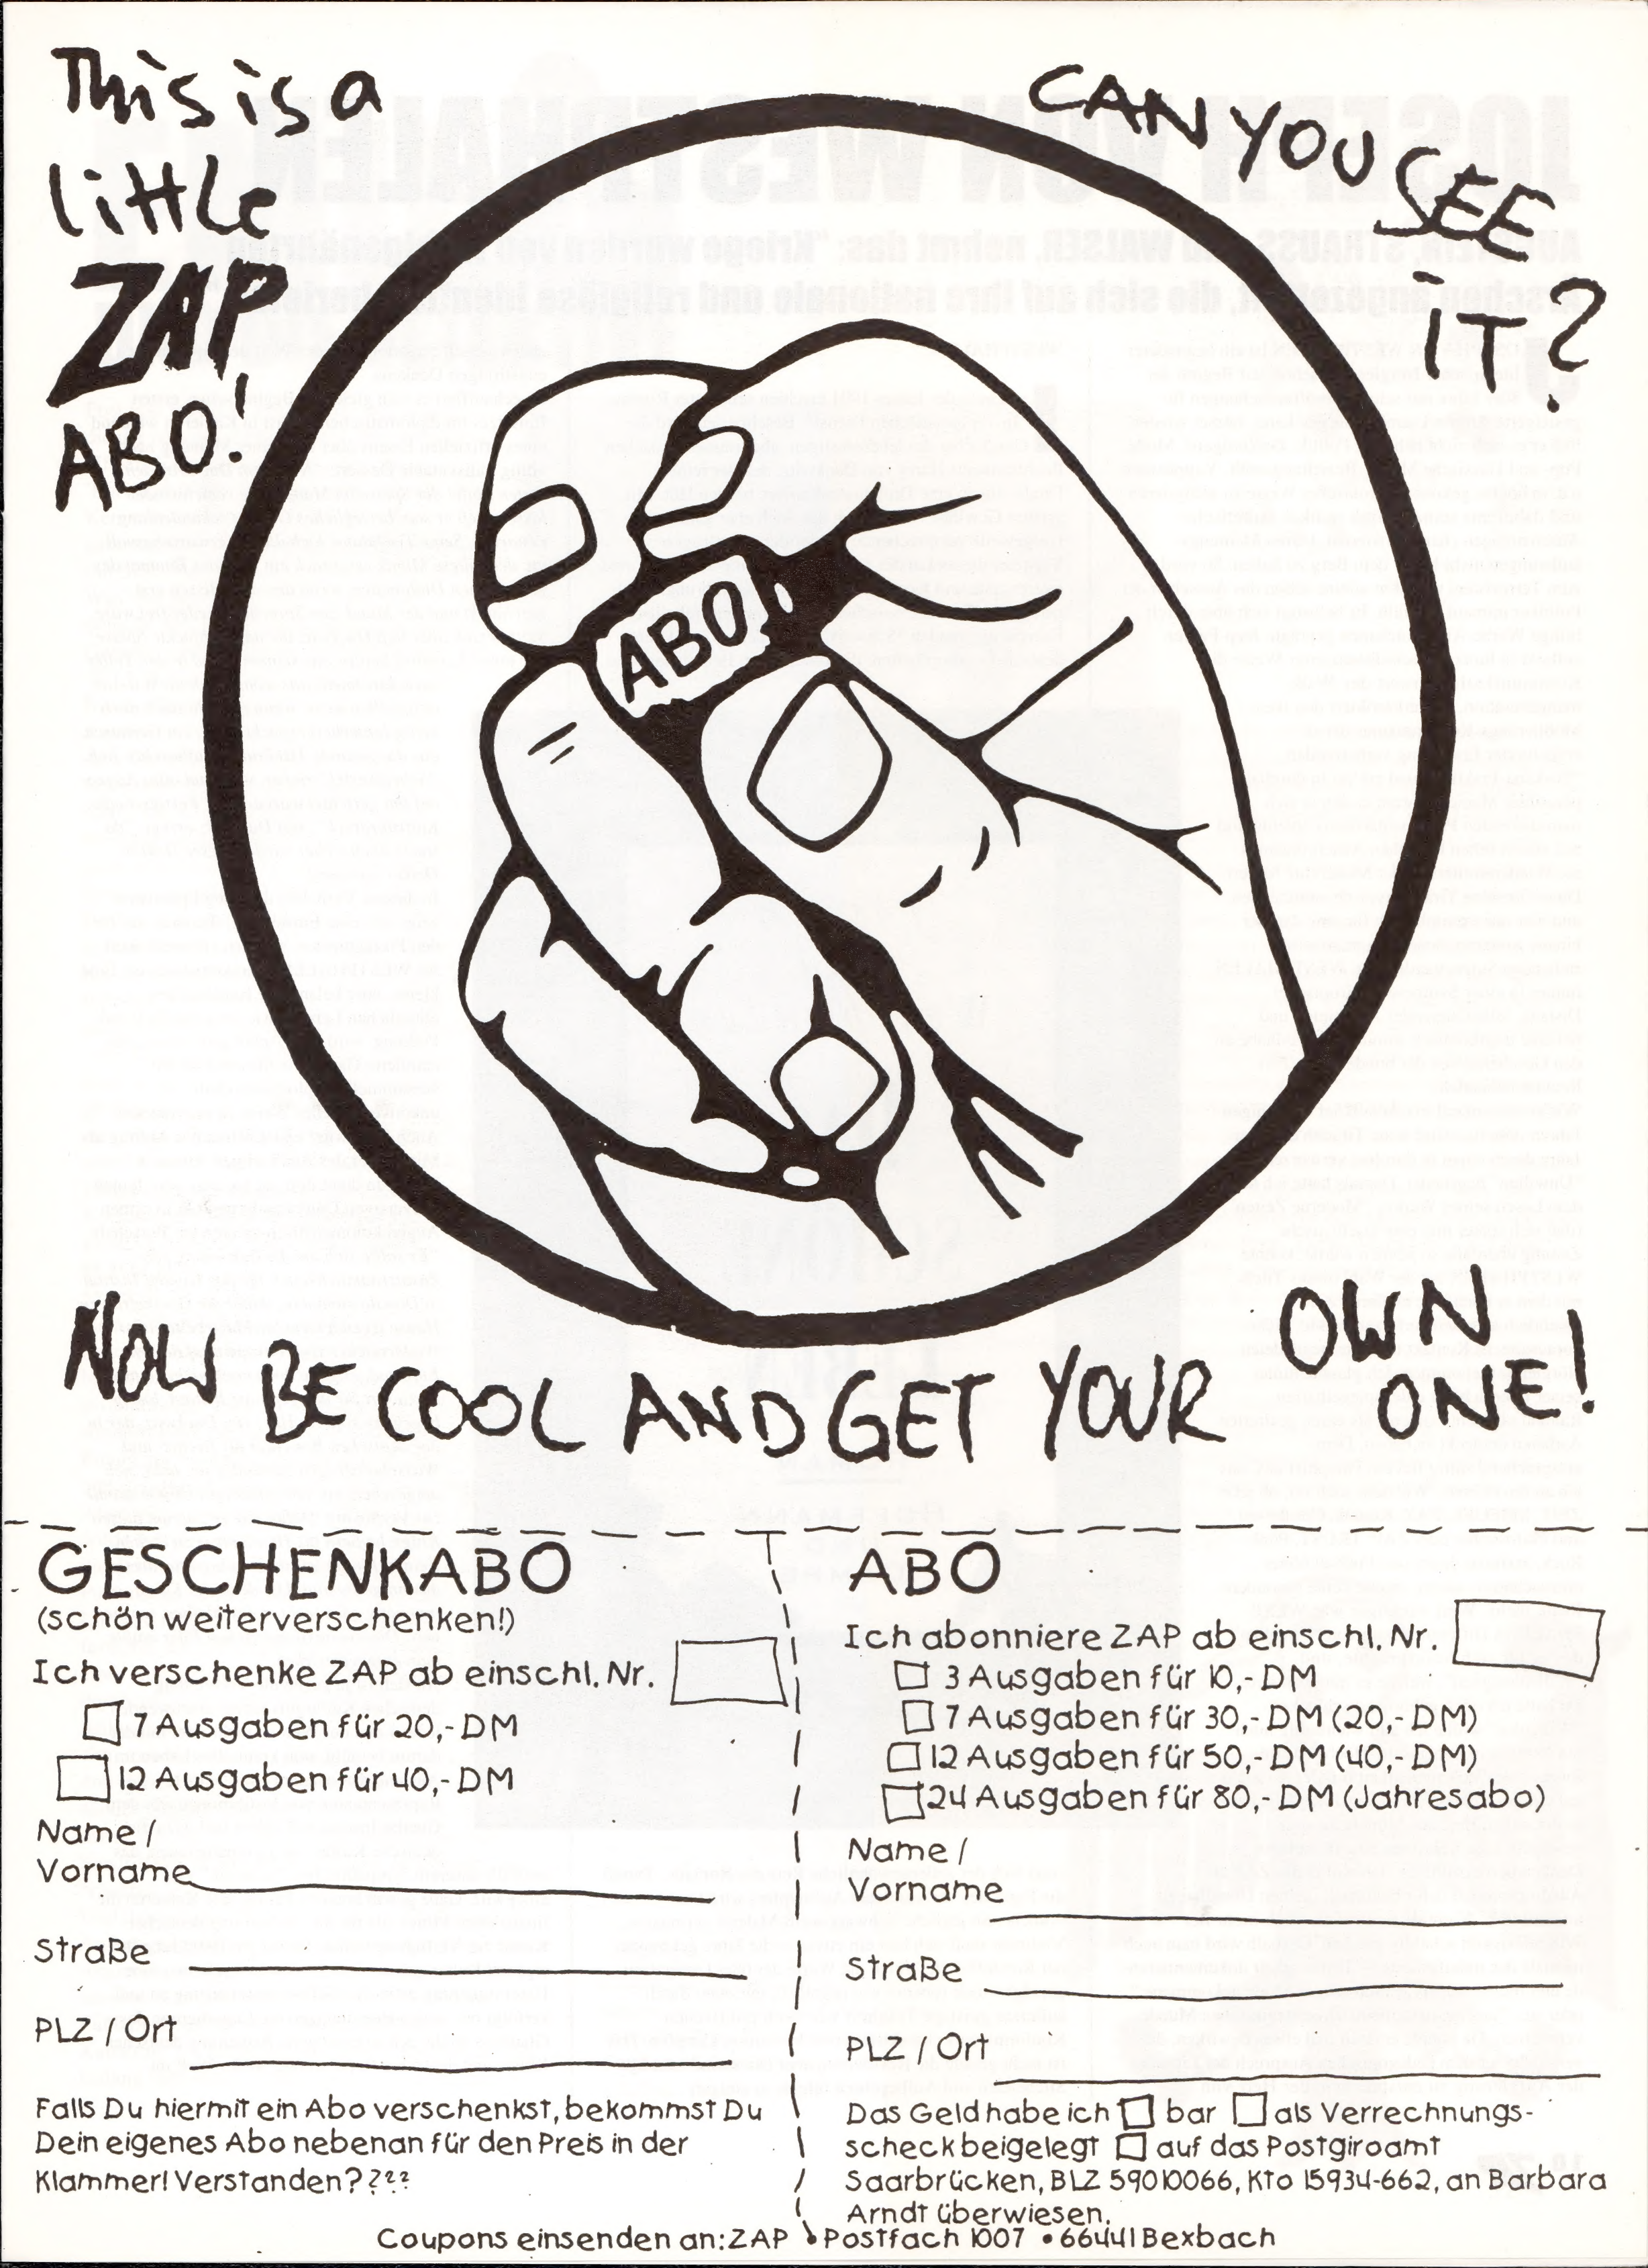 This is a
little
ZAP
ABO!
CAN YOU
SEE
iT?
ABO
NOW BE COOL AND GET YOUR OWN
ONE!
GESCHENKABO
(schön weiterverschenken!)
Ich verschenke ZAP ab einschl. Nr.
7 Ausgaben für 20,- DM
12 Ausgaben für 40,- DM
Name /
Vorname
Straße
PLZ / Ort
Falls Du hiermit ein Abo verschenkst, bekommst Du
Dein eigenes Abo nebenan für den Preis in der
Klammer! Verstanden????
ABO
Ich abonniere ZAP ab einschl. Nr.
3 Ausgaben für 10,- DM
7 Ausgaben für 30,- DM (20,- DM)
12 Ausgaben für 50,- DM (40,- DM)
24 Ausgaben für 80,- DM (Jahresabo)
Name /
Vorname
Straße
PLZ / Ort
Das Geld habe ich bar als Verrechnungs-
scheck beigelegt auf das Postgiroamt
Saarbrücken, BLZ 59010066, Kto 15934-662, an Barbara
Arndt überwiesen.
Coupons einsenden an: ZAP • Postfach 1007 • 66441 Bexbach